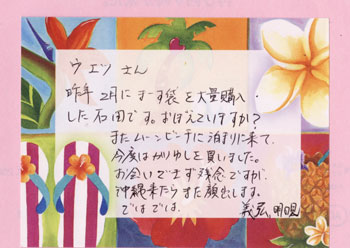 ウエツ さん
昨年 2月にまーす袋を大量購入
した石田です。おぼえていますか?
またムーンビーチに泊まりに来て、
今度はかりゆしを買いました。
お会いできず残念ですが、
沖縄来たらまた顔出します。
ではでは。